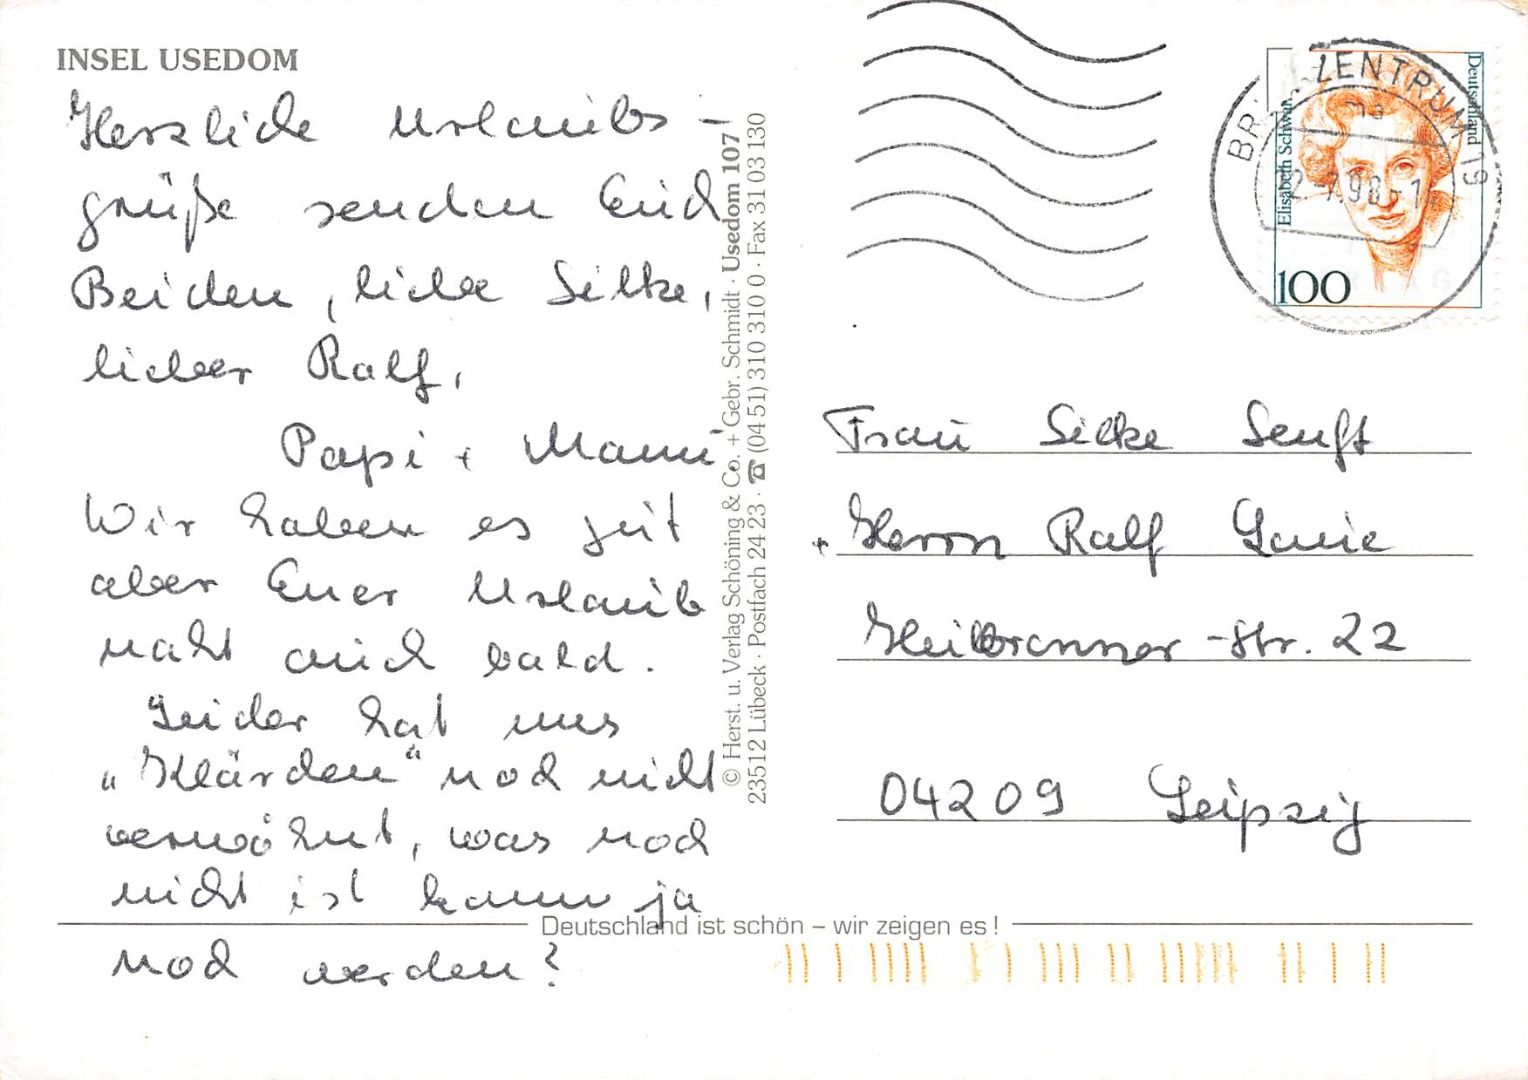 INSEL USEDOM
Herzliche Urlaubs-
grüße senden Euch
Beiden, liebe Silke,
lieber Ralf,
Papi + Mami
Wir haben es jeit
aber Euer Urlaub
naht auch bald.
Leider hat uns
„Klärchen“ noch nicht
verwöhnt, was noch
nicht ist kann ja
noch werden?
© Herst. u. Verlag Schöning & Co. + Gebr. Schmidt · Usedom 107
23512 Lübeck · Postfach 24 23 · ☎ (04 51) 310 310 0 · Fax 31 03 130
Deutschland ist schön – wir zeigen es!
Deutschland
Elisabeth Schwarz
100
ZENTRUM 19
Frau Silke Senft
+ Herrn Ralf
Heilbronner-Str. 22
04209 Leipzig